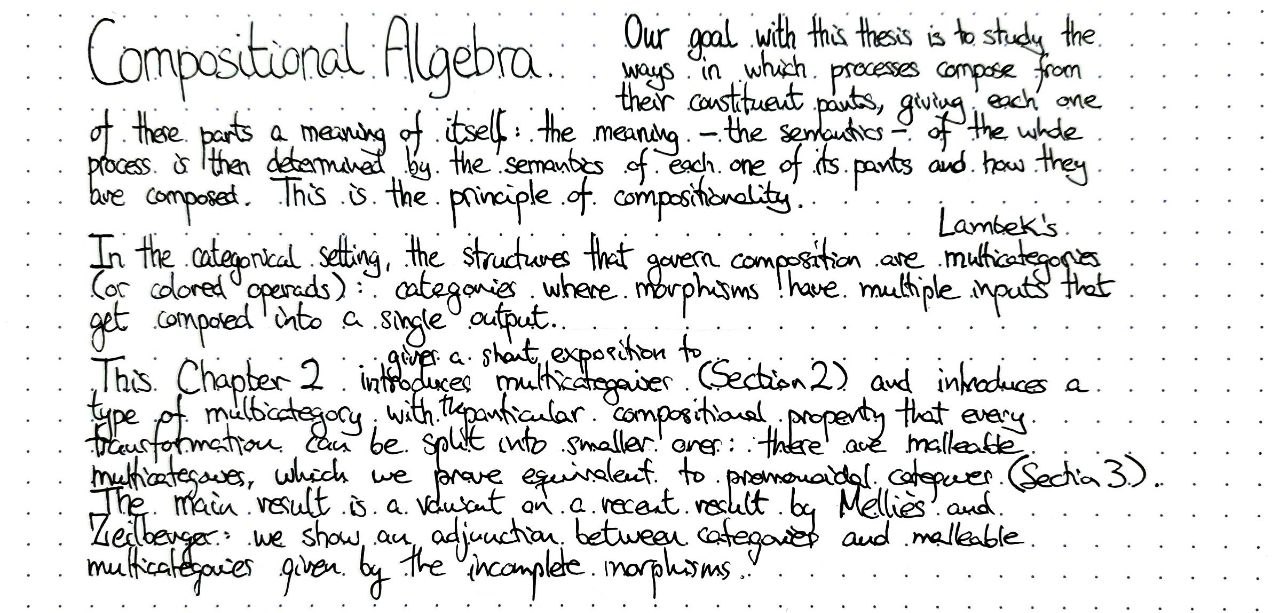 Compositional Algebra.
Our goal with this thesis is to study the
ways in which processes compose from
their constituent parts, giving each one
of these parts a meaning of itself: the meaning – the semantics – of the whole
process is then determined by the semantics of each one of its parts and how they
are composed. This is the principle of compositionality.
Lambek's
In the categorical setting, the structures that govern composition are multicategories
(or colored operads): categories where morphisms have multiple inputs that
get composed into a single output.
gives a short exposition to
This Chapter 2 introduces multicategories (Section 2) and introduces a
type of multicategory with the particular compositional property that every
transformation can be split into smaller ones: these are malleable
multicategories, which we prove equivalent to promonoidal categories (Section 3).
The main result is a variant on a recent result by Melliès and
Zeilberger: we show an adjunction between categories and malleable
multicategories given by the incomplete morphisms.